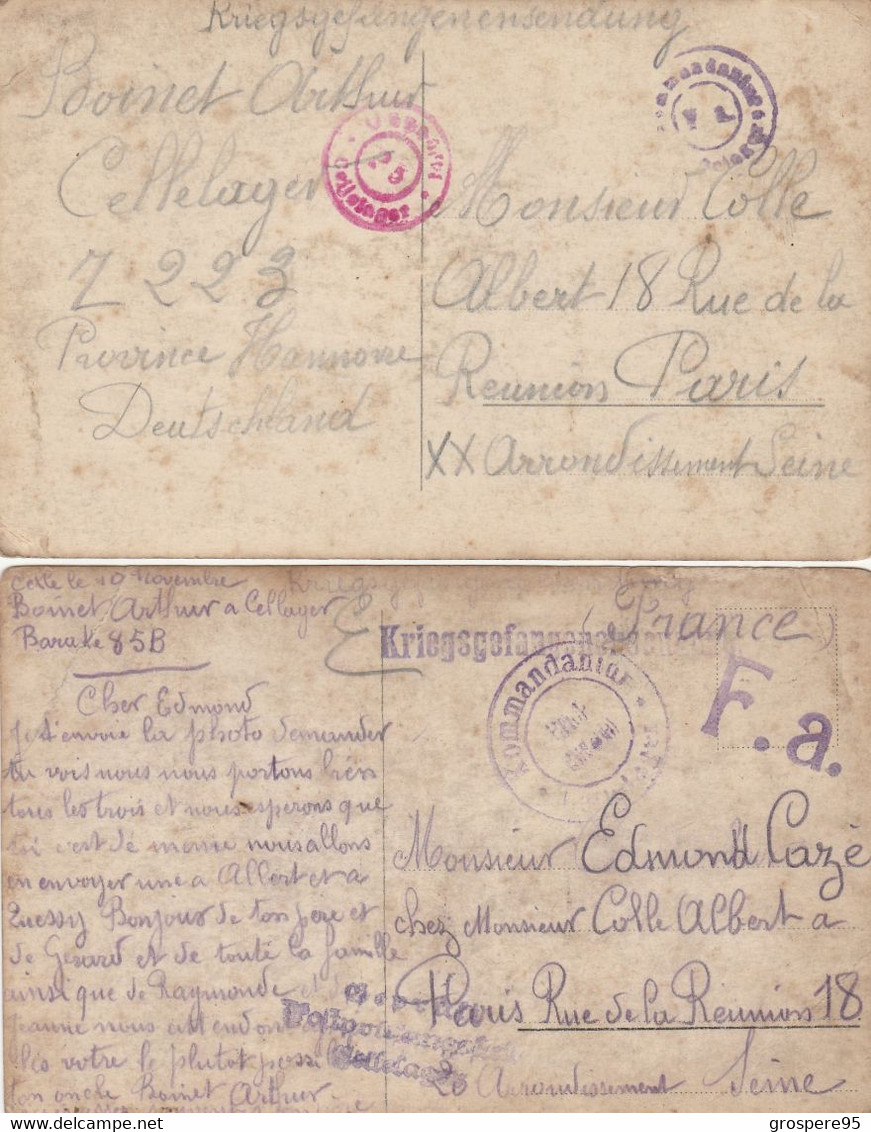 Kriegsgefangenensendung
Boinet Arthur
Cellelager
7 2 2 3
Province Hannovre
Deutschland
Geprüft
Cellelager
Monsieur Colle
Albert 18 Rue de la
Reunion Paris
XX Arrondissement Seine
Celle le 10 Novembre
Boinet Arthur a Cellager
Barake 85B
Cher Edmond
Je t'envoie la photo demander
tu vois nous nous portons bien
tous les trois et nous esperons que
toi c'est de meme nous allons
en envoyer une a Albert et a
Quessy Bonjour de ton pere et
de Gerard et de toute la famille
ainsi que de Raymonde et
Jeanne nous attendon
la votre le plutot possi
ton oncle Boinet
Arthur
Kriegsgefangenensendung
(France)
Kommandantur
F. a.
Monsieur Edmond Cazé
chez Monsieur Colle Albert a
Paris Rue de la Réunion 18
20 Arrondissement Seine
Cellelager
grospere95